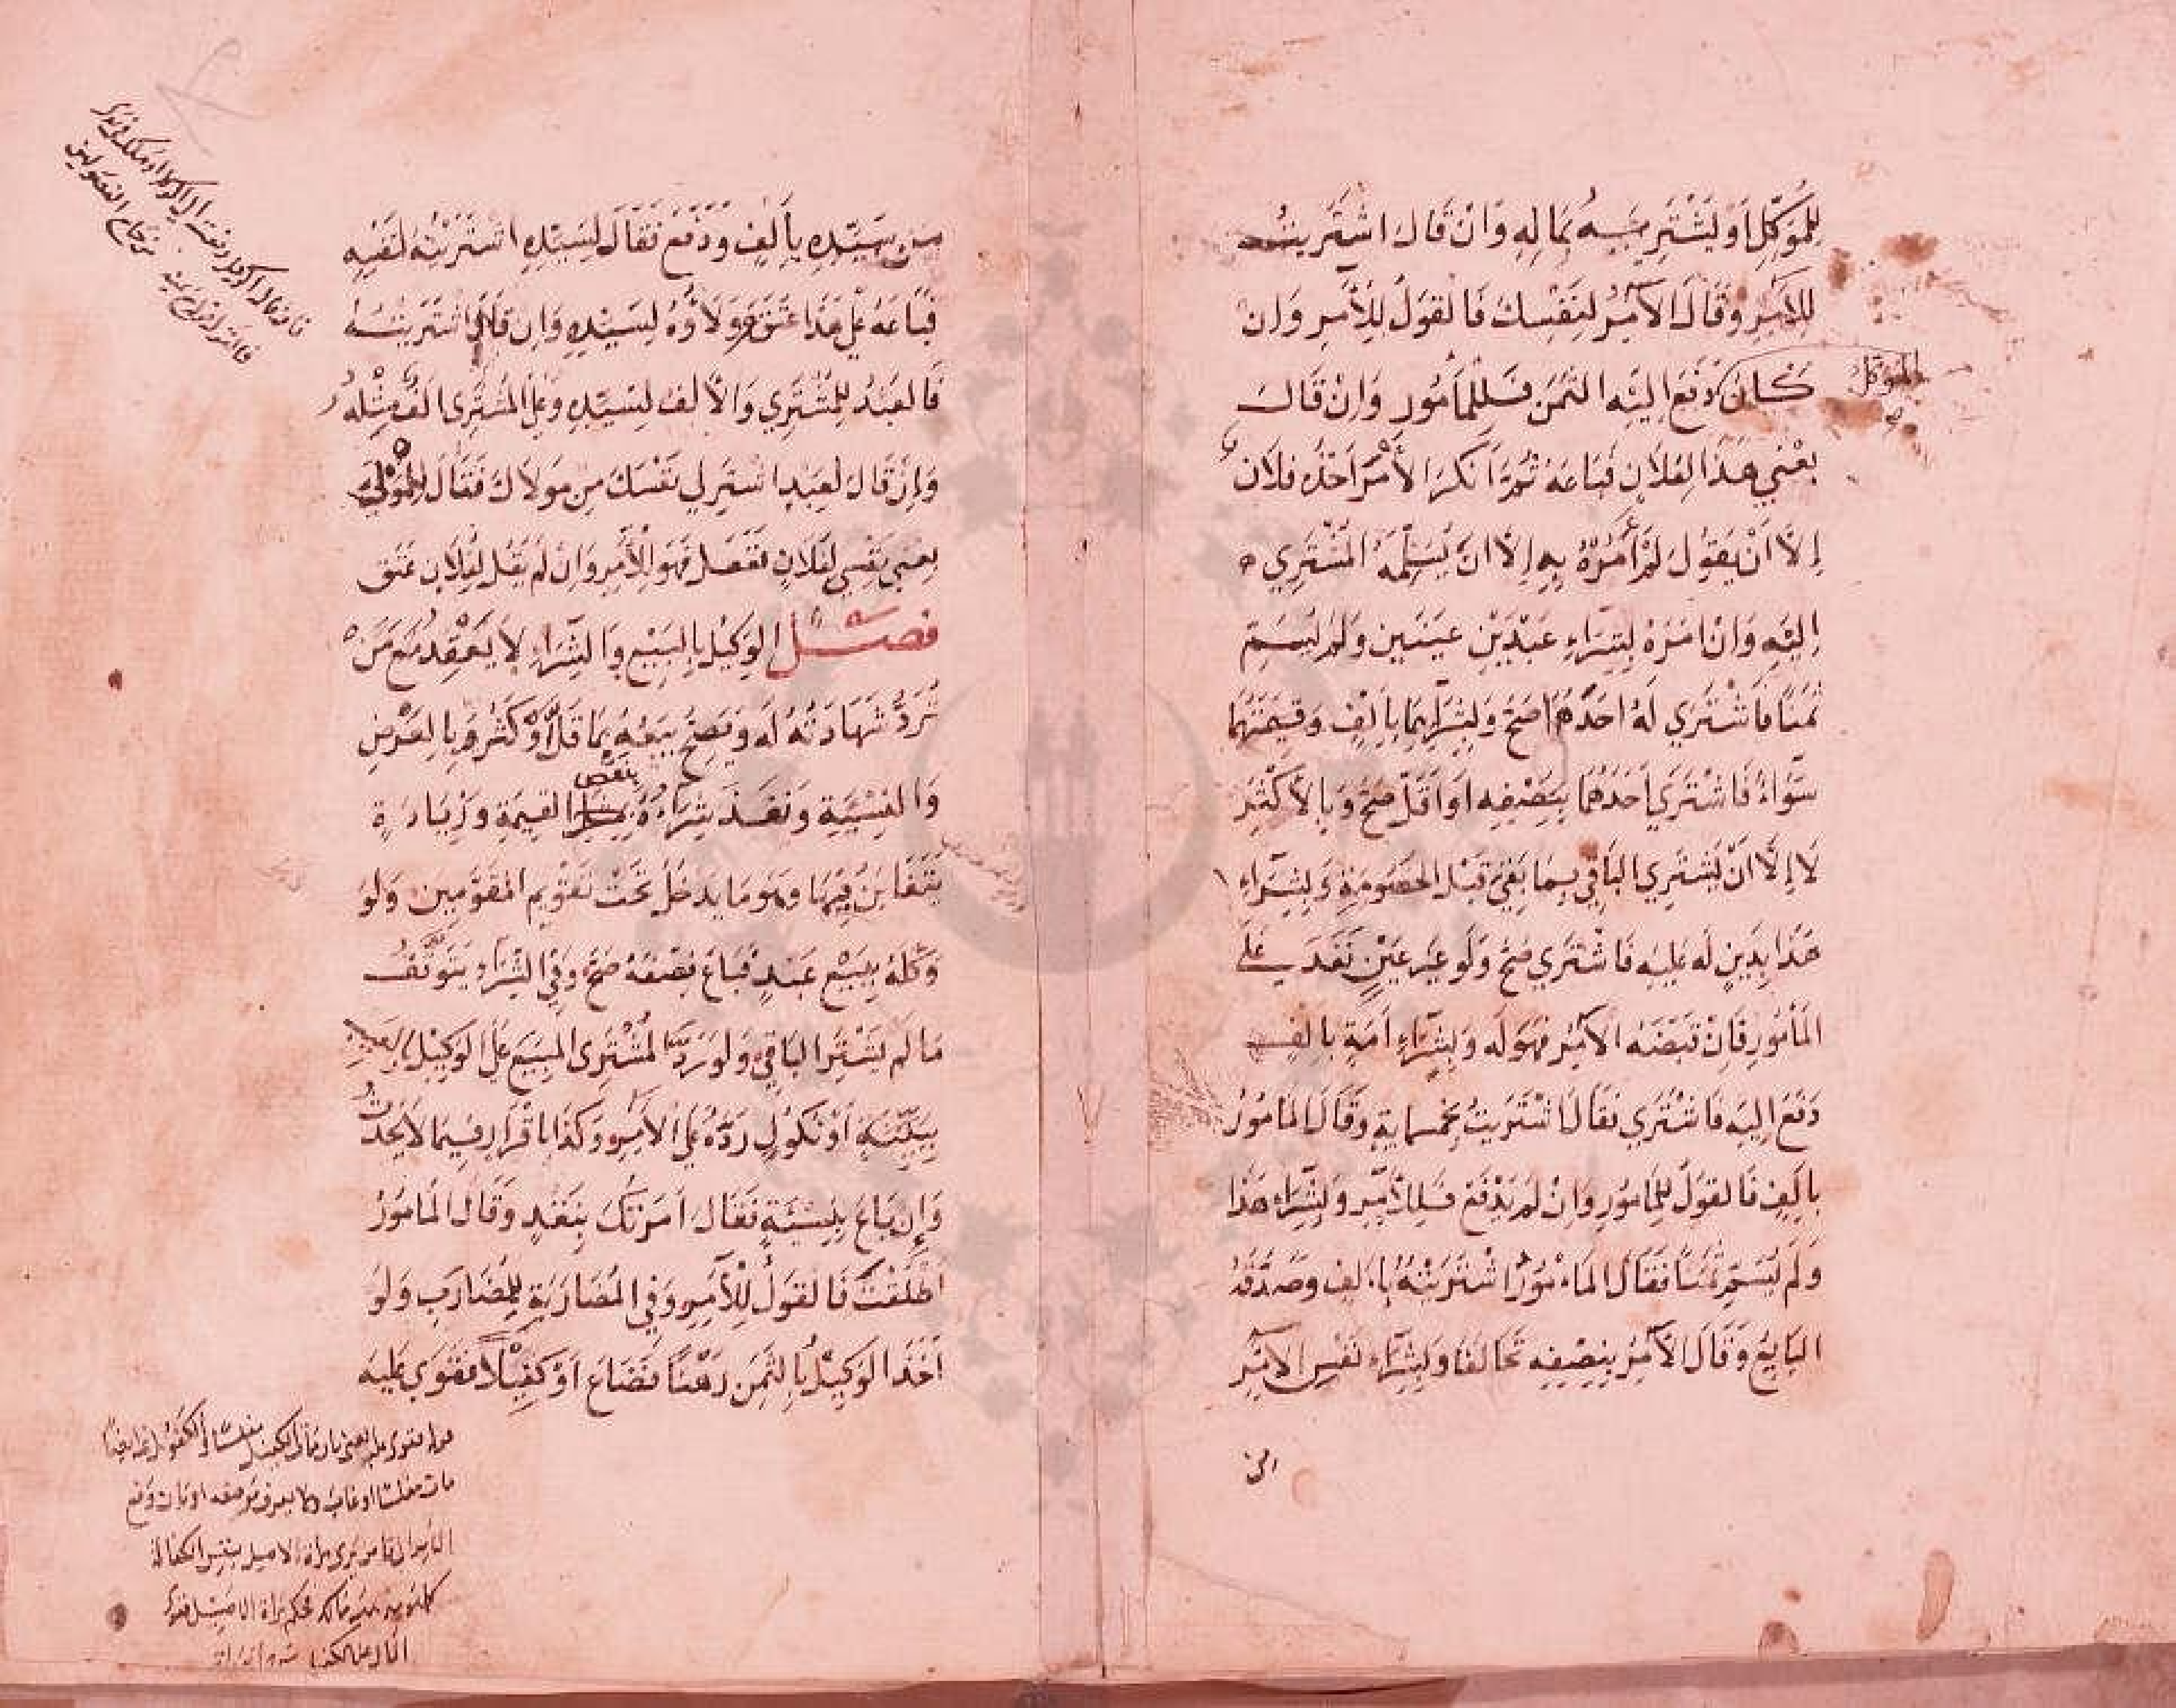 للموكل أو يشتريه بماله وان قال اشتريته
للآمر وقال الآمر لنفسك فالقول للآمر وان
الموكل
كان دفع اليه الثمن فللمأمور وان قال
بعني هذا لفلان فباعه ثم أنكر الأمر أخذه فلان
إلا أن يقول لم آمره به إلا أن يسلمه المشتري
إليه وان امره بشراء عبدين عينين ولم يسم
ثمنا فاشترى له احدهما صح وبشرائهما بألف وقيمتهما
سواء فاشترى أحدهما بنصفه أو أقل صح وبالأكثر
لا إلا أن يشتري الباقي بما بقي قبل الخصومة وبشراء
هذا بدين له عليه فاشترى صح ولو غير عين نفذ على
المأمور فان قبضه الآمر فهو له وبشراء امة بالف
دفع إليه فاشترى فقال اشتريت بخمسماية وقال المامور
بألف فالقول للمامور وان لم يدفع فللآمر وبشراء هذا
ولم يسم ثمنا فقال المامور اشتريته بألف وصدقه
البايع وقال الآمر بنصفه تحالفا وبشراء نفس الآمر
من
من سيده بألف ودفع فقال لسيده اشتريته لنفسه
فباعه على هذا عتق وولاؤه لسيده وان قال اشتريته
فالعبد للمشتري والألف لسيده وعلى المشتري الف مثله
وان قال لعبد اشتر لي نفسك من مولاك فقال للمولى
بعني نفسي لفلان ففعل فهو للآمر وان لم يقل لفلان عتق
فصل الوكيل بالبيع والشراء لا يعقد مع من
ترد شهادته له وصح بيعه بما قل أو كثر وبالعرض
والنسيئة ونفذ شراءه بنقص القيمة وزيادة
يتغابن فيها وهو ما يدخل تحت تقويم المقومين ولو
وكله ببيع عبد فباع نصفه صح وفي الشراء يتوقف
ما لم يشتر الباقي ولو رد المشتري المبيع على الوكيل بالعيب
ببينة أو نكول رده على الآمر وكذا باقرار فيما لا يحدث
وان باع بنسيئة فقال امرتك بنقد وقال المامور
اطلقت فالقول للآمر وفي المضاربة للمضارب ولو
أخذ الوكيل بالثمن رهنا فضاع أو كفيلا فتوي عليه